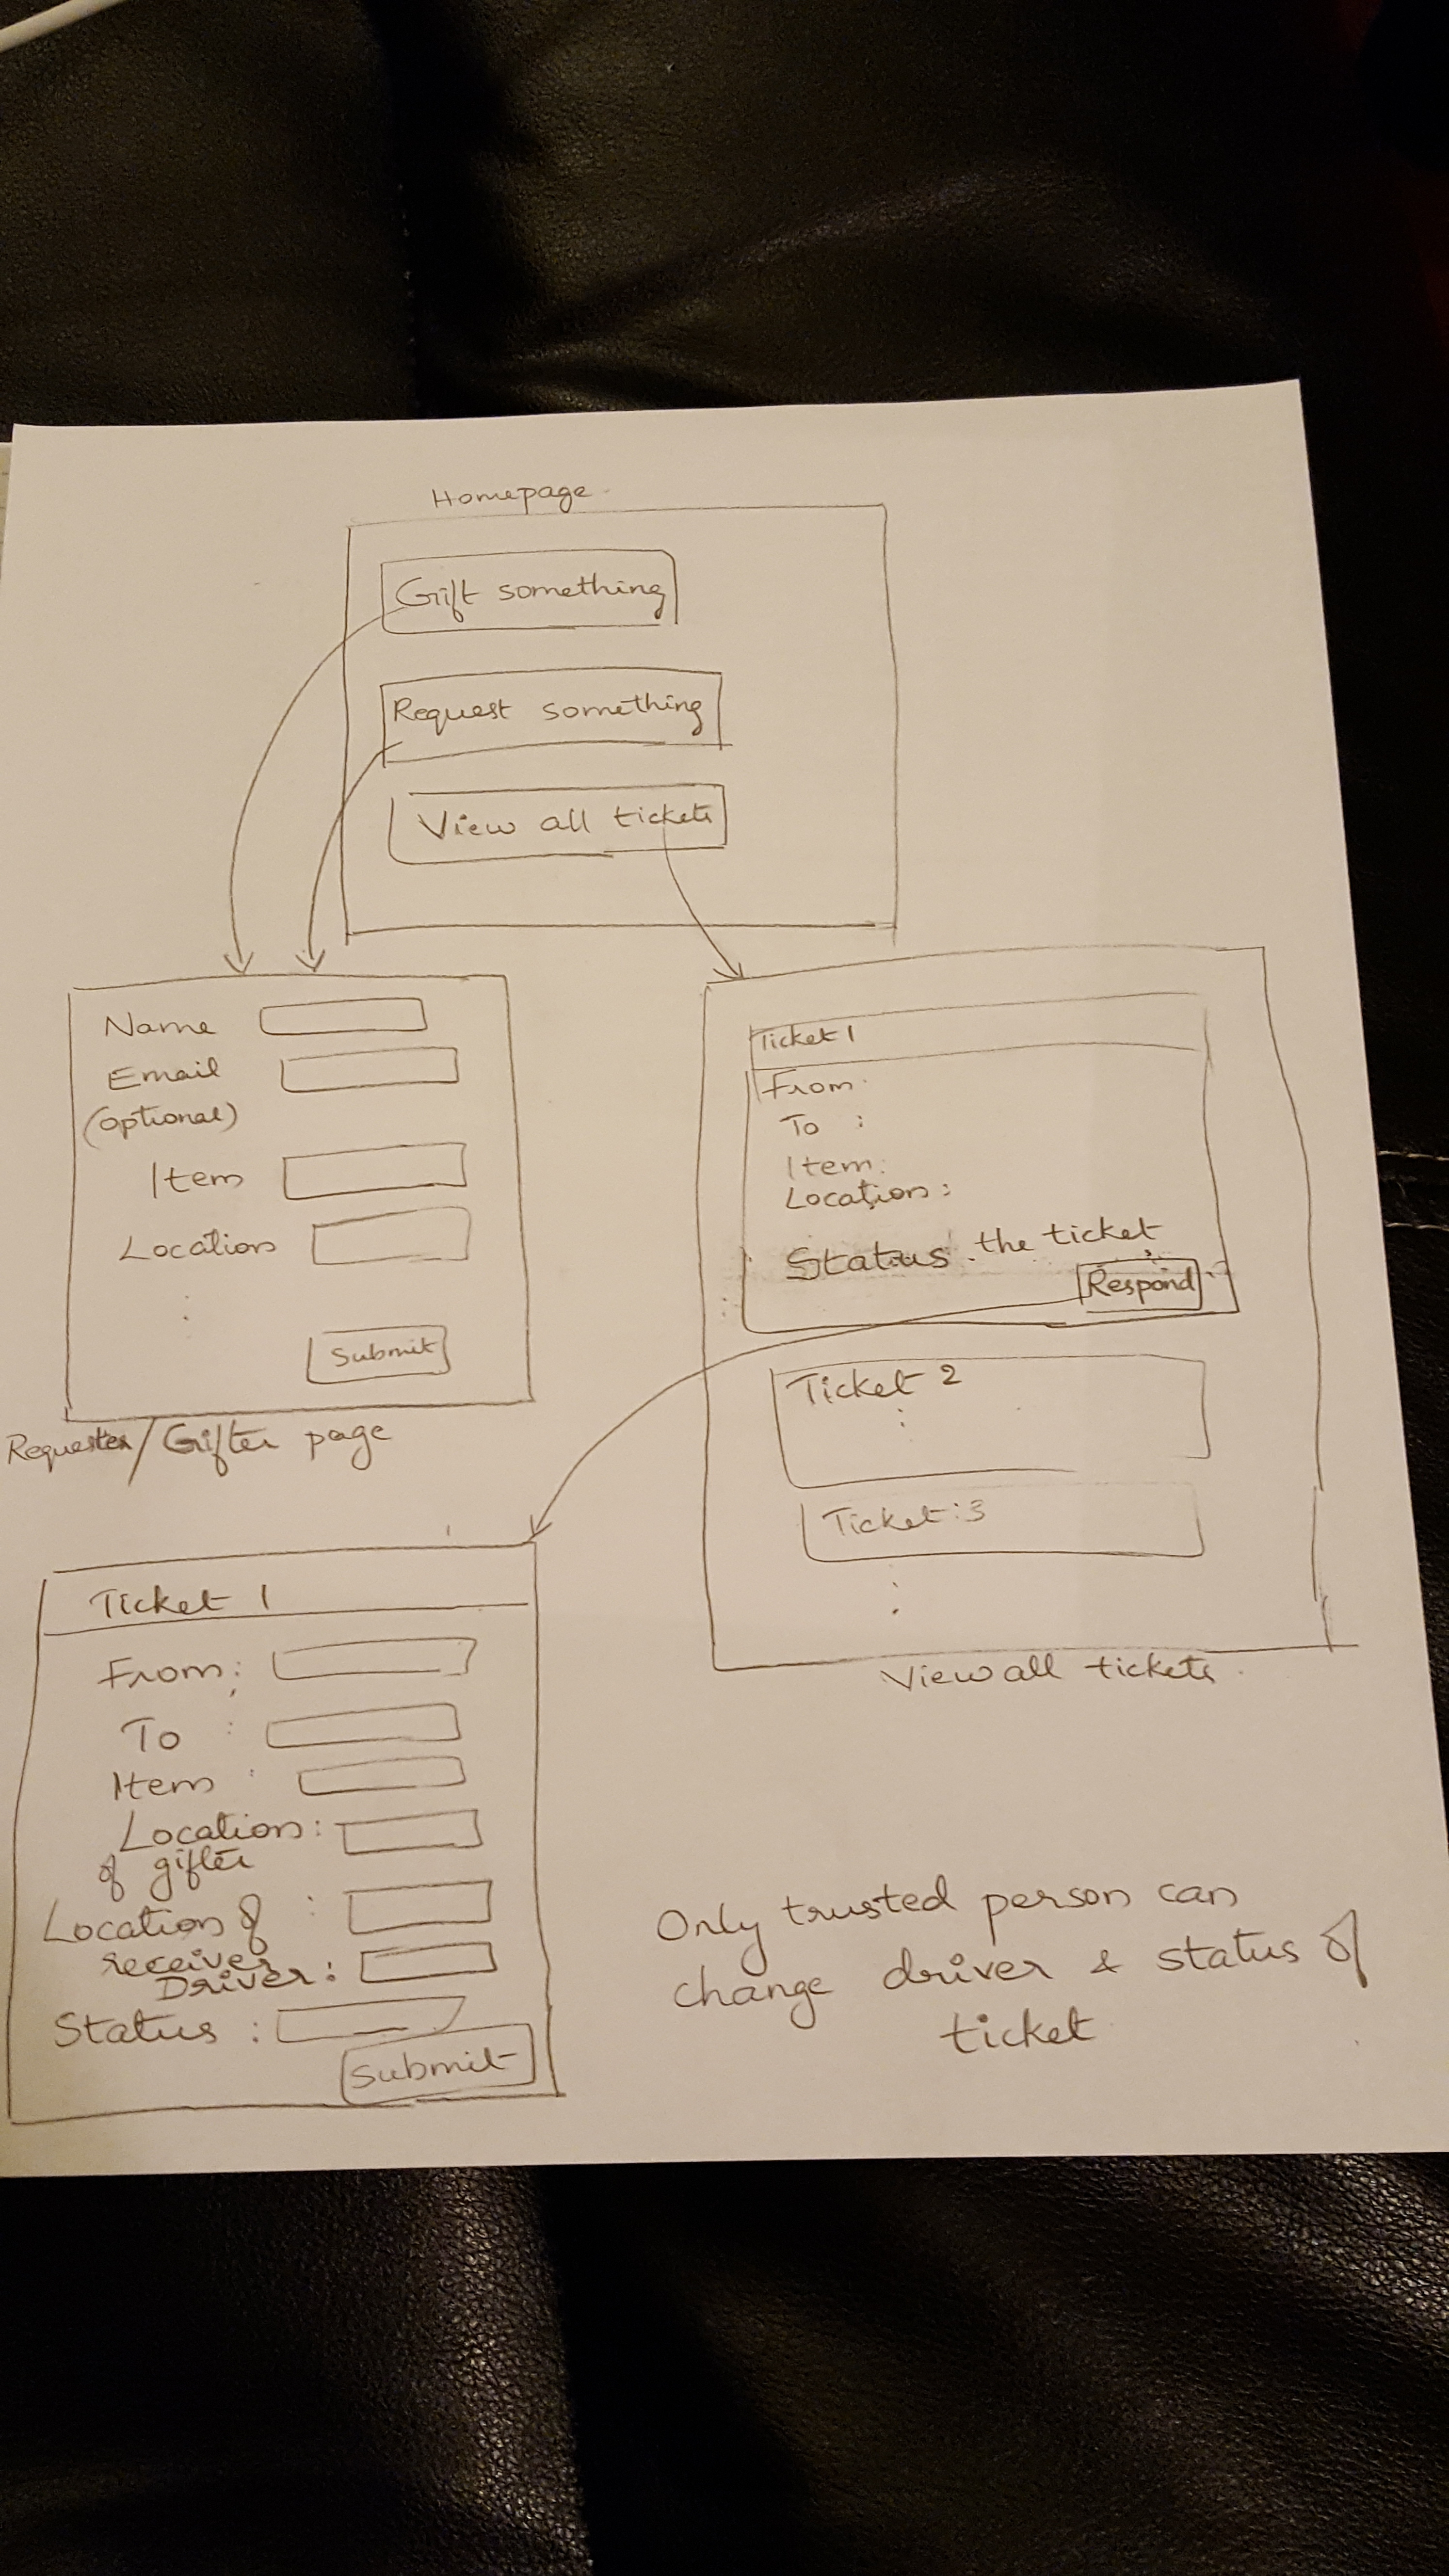 Homepage
Gift something
Request something
View all tickets
Name
Email
(optional)
Item
Location
Submit
Requester/Gifter page
Ticket 1
From:
To :
Item:
Location:
Status the ticket
Respond
Ticket 2
Ticket:3
View all tickets
Ticket 1
From:
To :
Item :
Location:
of gifter
Location of :
receiver
Driver:
Status :
Submit
Only trusted person can
change driver & status of
ticket